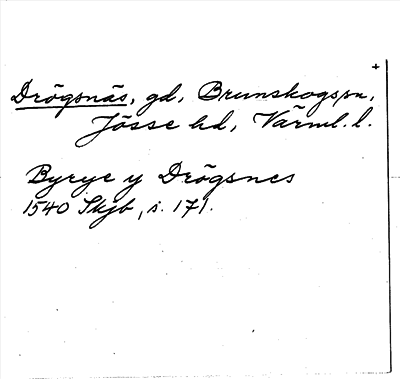 Drögsnäs, gd, Brunskogs sn,
Jösse hd, Värml. l.
Byrye y Drögsnes
1540 Skjb, s. 171.